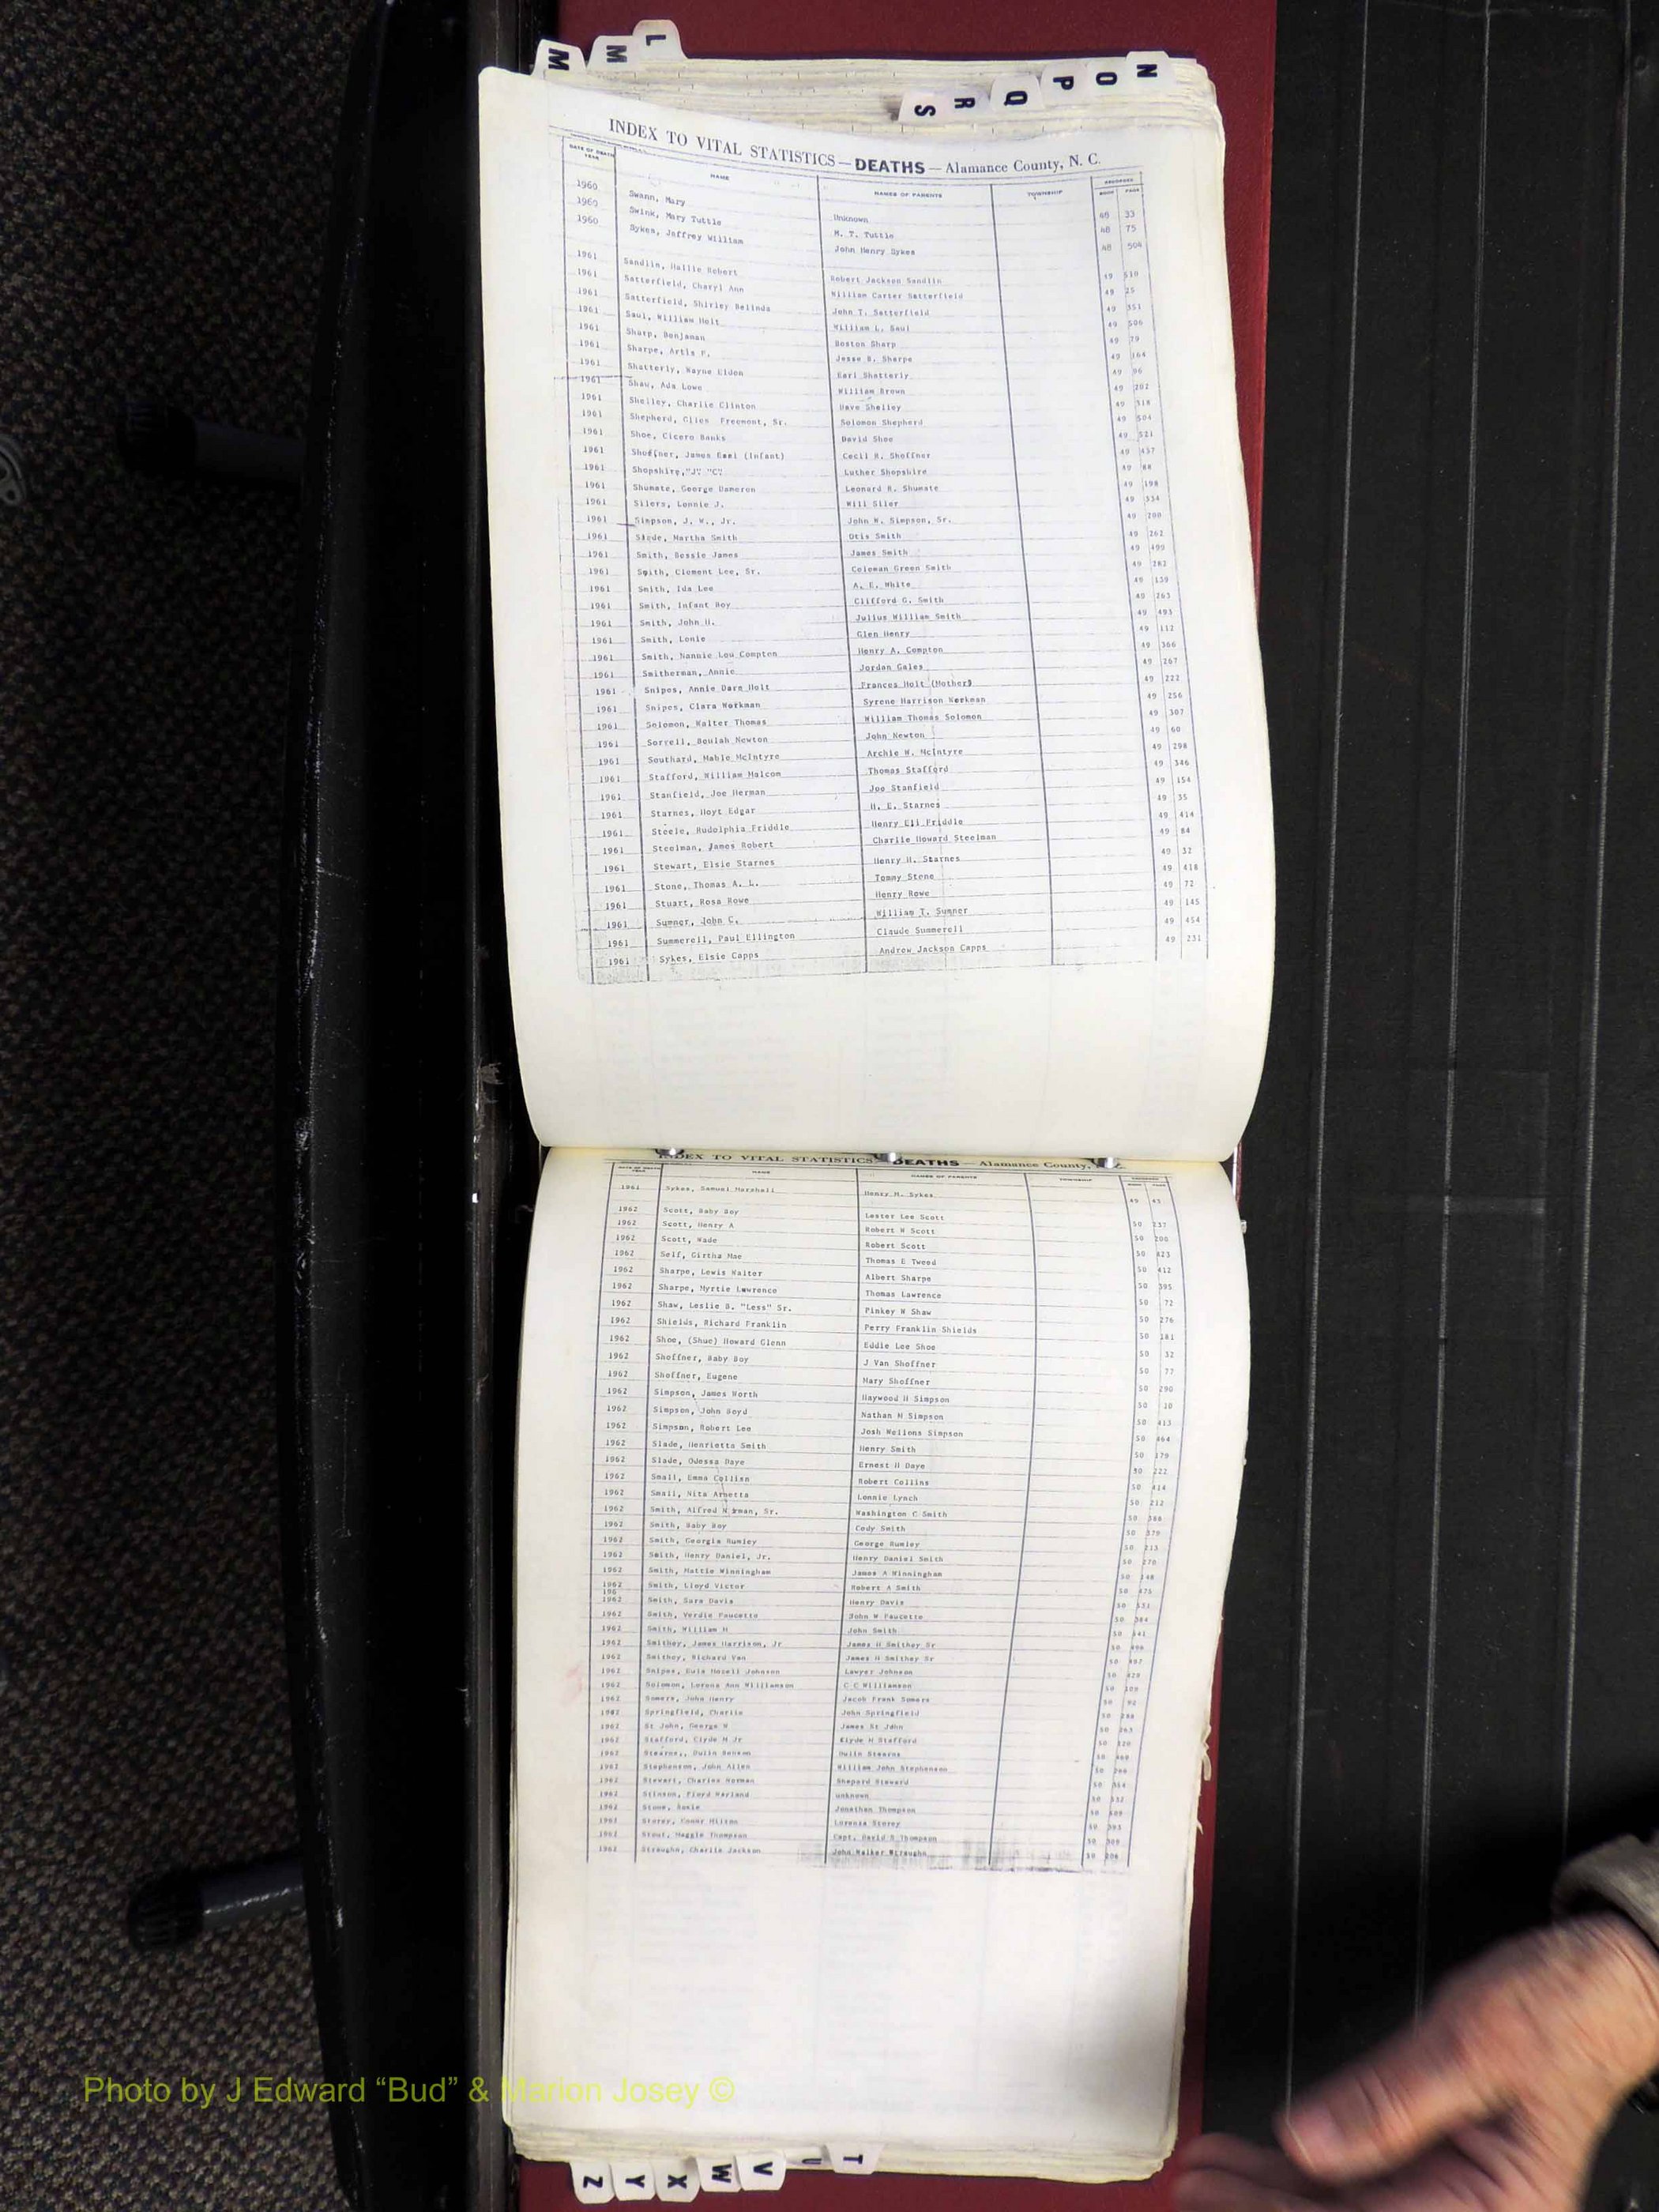 L
M
M
N
O
P
Q
R
S
INDEX TO VITAL STATISTICS — DEATHS — Alamance County, N. C.
DATE OF DEATH YEAR NAME NAMES OF PARENTS TOWNSHIP RECORDED BOOK PAGE
1960 Swann, Mary Unknown 48 33
1960 Swink, Mary Tuttle M. T. Tuttle 48 75
1960 Sykes, Jaffrey William John Henry Sykes 48 504
1961 Sandlin, Hallie Robert Robert Jackson Sandlin 49 510
1961 Satterfield, Charyl Ann William Carter Satterfield 49 25
1961 Satterfield, Shirley Belinda John T. Satterfield 49 351
1961 Saul, William Holt William L. Saul 49 506
1961 Sharp, Benjaman Boston Sharp 49 79
1961 Sharpe, Artis F. Jesse B. Sharpe 49 164
1961 Shatterly, Wayne Eldon Earl Shatterly 49 96
1961 Shaw, Ada Lowe William Brown 49 202
1961 Shelley, Charlie Clinton Dave Shelley 49 318
1961 Shepherd, Giles Freemont, Sr. Solomon Shepherd 49 504
1961 Shoe, Cicero Banks David Shoe 49 521
1961 Shoffner, James Earl (Infant) Cecil R. Shoffner 49 437
1961 Shopshire, "J" "C" Luther Shopshire 49 88
1961 Shumate, George Dameron Leonard R. Shumate 49 198
1961 Silers, Lonnie J. Will Siler 49 334
1961 Simpson, J. W., Jr. John W. Simpson, Sr. 49 200
1961 Slade, Martha Smith Otis Smith 49 262
1961 Smith, Bessie James James Smith 49 499
1961 Smith, Clement Lee, Sr. Coleman Green Smith 49 282
1961 Smith, Ida Lee A. E. White 49 150
1961 Smith, Infant Boy Clifford G. Smith 49 263
1961 Smith, John H. Julius William Smith 49 493
1961 Smith, Lonie Glen Henry 49 112
1961 Smith, Nannie Lou Compton Henry A. Compton 49 366
1961 Smitherman, Annie Jordan Gales 49 267
1961 Snipes, Annie Dare Holt Frances Holt (Mother) 49 222
1961 Snipes, Clara Workman Syrene Harrison Workman 49 256
1961 Solomon, Walter Thomas William Thomas Solomon 49 307
1961 Sorrell, Beulah Newton John Newton 49 60
1961 Southard, Mable McIntyre Archie W. McIntyre 49 298
1961 Stafford, William Malcom Thomas Stafford 49 346
1961 Stanfield, Joe Herman Joe Stanfield 49 154
1961 Starnes, Hoyt Edgar H. E. Starnes 49 35
1961 Steele, Rudolphia Friddle Henry Eli Friddle 49 414
1961 Steelman, James Robert Charlie Howard Steelman 49 84
1961 Stewart, Elsie Starnes Henry H. Starnes 49 32
1961 Stone, Thomas A. L. Tommy Stone 49 418
1961 Stuart, Rosa Rowe Henry Rowe 49 72
1961 Sumner, John C. William T. Sumner 49 145
1961 Summerell, Paul Ellington Claude Summerell 49 454
1961 Sykes, Elsie Capps Andrew Jackson Capps 49 231
INDEX TO VITAL STATISTICS DEATHS — Alamance County,
DATE OF DEATH YEAR NAME NAMES OF PARENTS TOWNSHIP
1961 Sykes, Samuel Marshall Henry M. Sykes 49 43
1962 Scott, Baby Boy Lester Lee Scott 50 237
1962 Scott, Henry A Robert W Scott 50 200
1962 Scott, Wade Robert Scott 50 423
1962 Self, Girtha Mae Thomas E Tweed 50 412
1962 Sharpe, Lewis Walter Albert Sharpe 50 395
1962 Sharpe, Myrtle Lawrence Thomas Lawrence 50 72
1962 Shaw, Leslie B. "Less" Sr. Pinkey W Shaw 50 276
1962 Shields, Richard Franklin Perry Franklin Shields 50 181
1962 Shoe, (Shue) Howard Glenn Eddie Lee Shoe 50 32
1962 Shoffner, Baby Boy J Van Shoffner 50 77
1962 Shoffner, Eugene Mary Shoffner 50 290
1962 Simpson, James Worth Haywood H Simpson 50 10
1962 Simpson, John Boyd Nathan H Simpson 50 413
1962 Simpson, Robert Lee Josh Wellons Simpson 50 464
1962 Slade, Henrietta Smith Henry Smith 50 179
1962 Slade, Odessa Daye Ernest H Daye 50 222
1962 Small, Emma Collisn Robert Collins 50 414
1962 Small, Nita Arnetta Lonnie Lynch 50 212
1962 Smith, Alfred Norman, Sr. Washington C Smith 50 388
1962 Smith, Baby Boy Cody Smith 50 379
1962 Smith, Georgia Rumley George Rumley 50 213
1962 Smith, Henry Daniel, Jr. Henry Daniel Smith 50 270
1962 Smith, Mattie Winningham James A Winningham 50 248
1962 Smith, Lloyd Victor Robert A Smith 50 475
1962 Smith, Sara Davis Henry Davis 50 531
1962 Smith, Verdie Faucette John W Faucette 50 384
1962 Smith, William H John Smith 50
1962 Smithey, James Harrison, Jr James H Smithey Sr 50
1962 Smithey, Richard Van James H Smithey Sr 50
1962 Snipes, Eula Hazell Johnson Lawyer Johnson 50 429
1962 Solomon, Lorena Ann Williamson C C Williamson 50 109
1962 Somers, John Henry Jacob Frank Somers 50 92
1962 Springfield, Charlie John Springfield 50
1962 St John, George W James St John 50
1962 Stafford, Clyde H Jr Clyde H Stafford 50
1962 Stearns, Dulin Benson Dulin Stearns 50
1962 Stephenson, John Allen William John Stephenson 50
1962 Stewart, Charles Norman Sheperd Steward 50
1962 Stinson, Floyd Warland unknown 50
1962 Stone, Roxie Jonathan Thompson 50
1962 Storey, Conny Milton Lorenza Storey 50
1962 Stout, Maggie Thompson Capt. David S Thompson 50
1962 Straughn, Charlie Jackson John Walker Straughn 50
Photo by J Edward “Bud” & Marion Josey ©
Z
Y
X
W
V
U
T